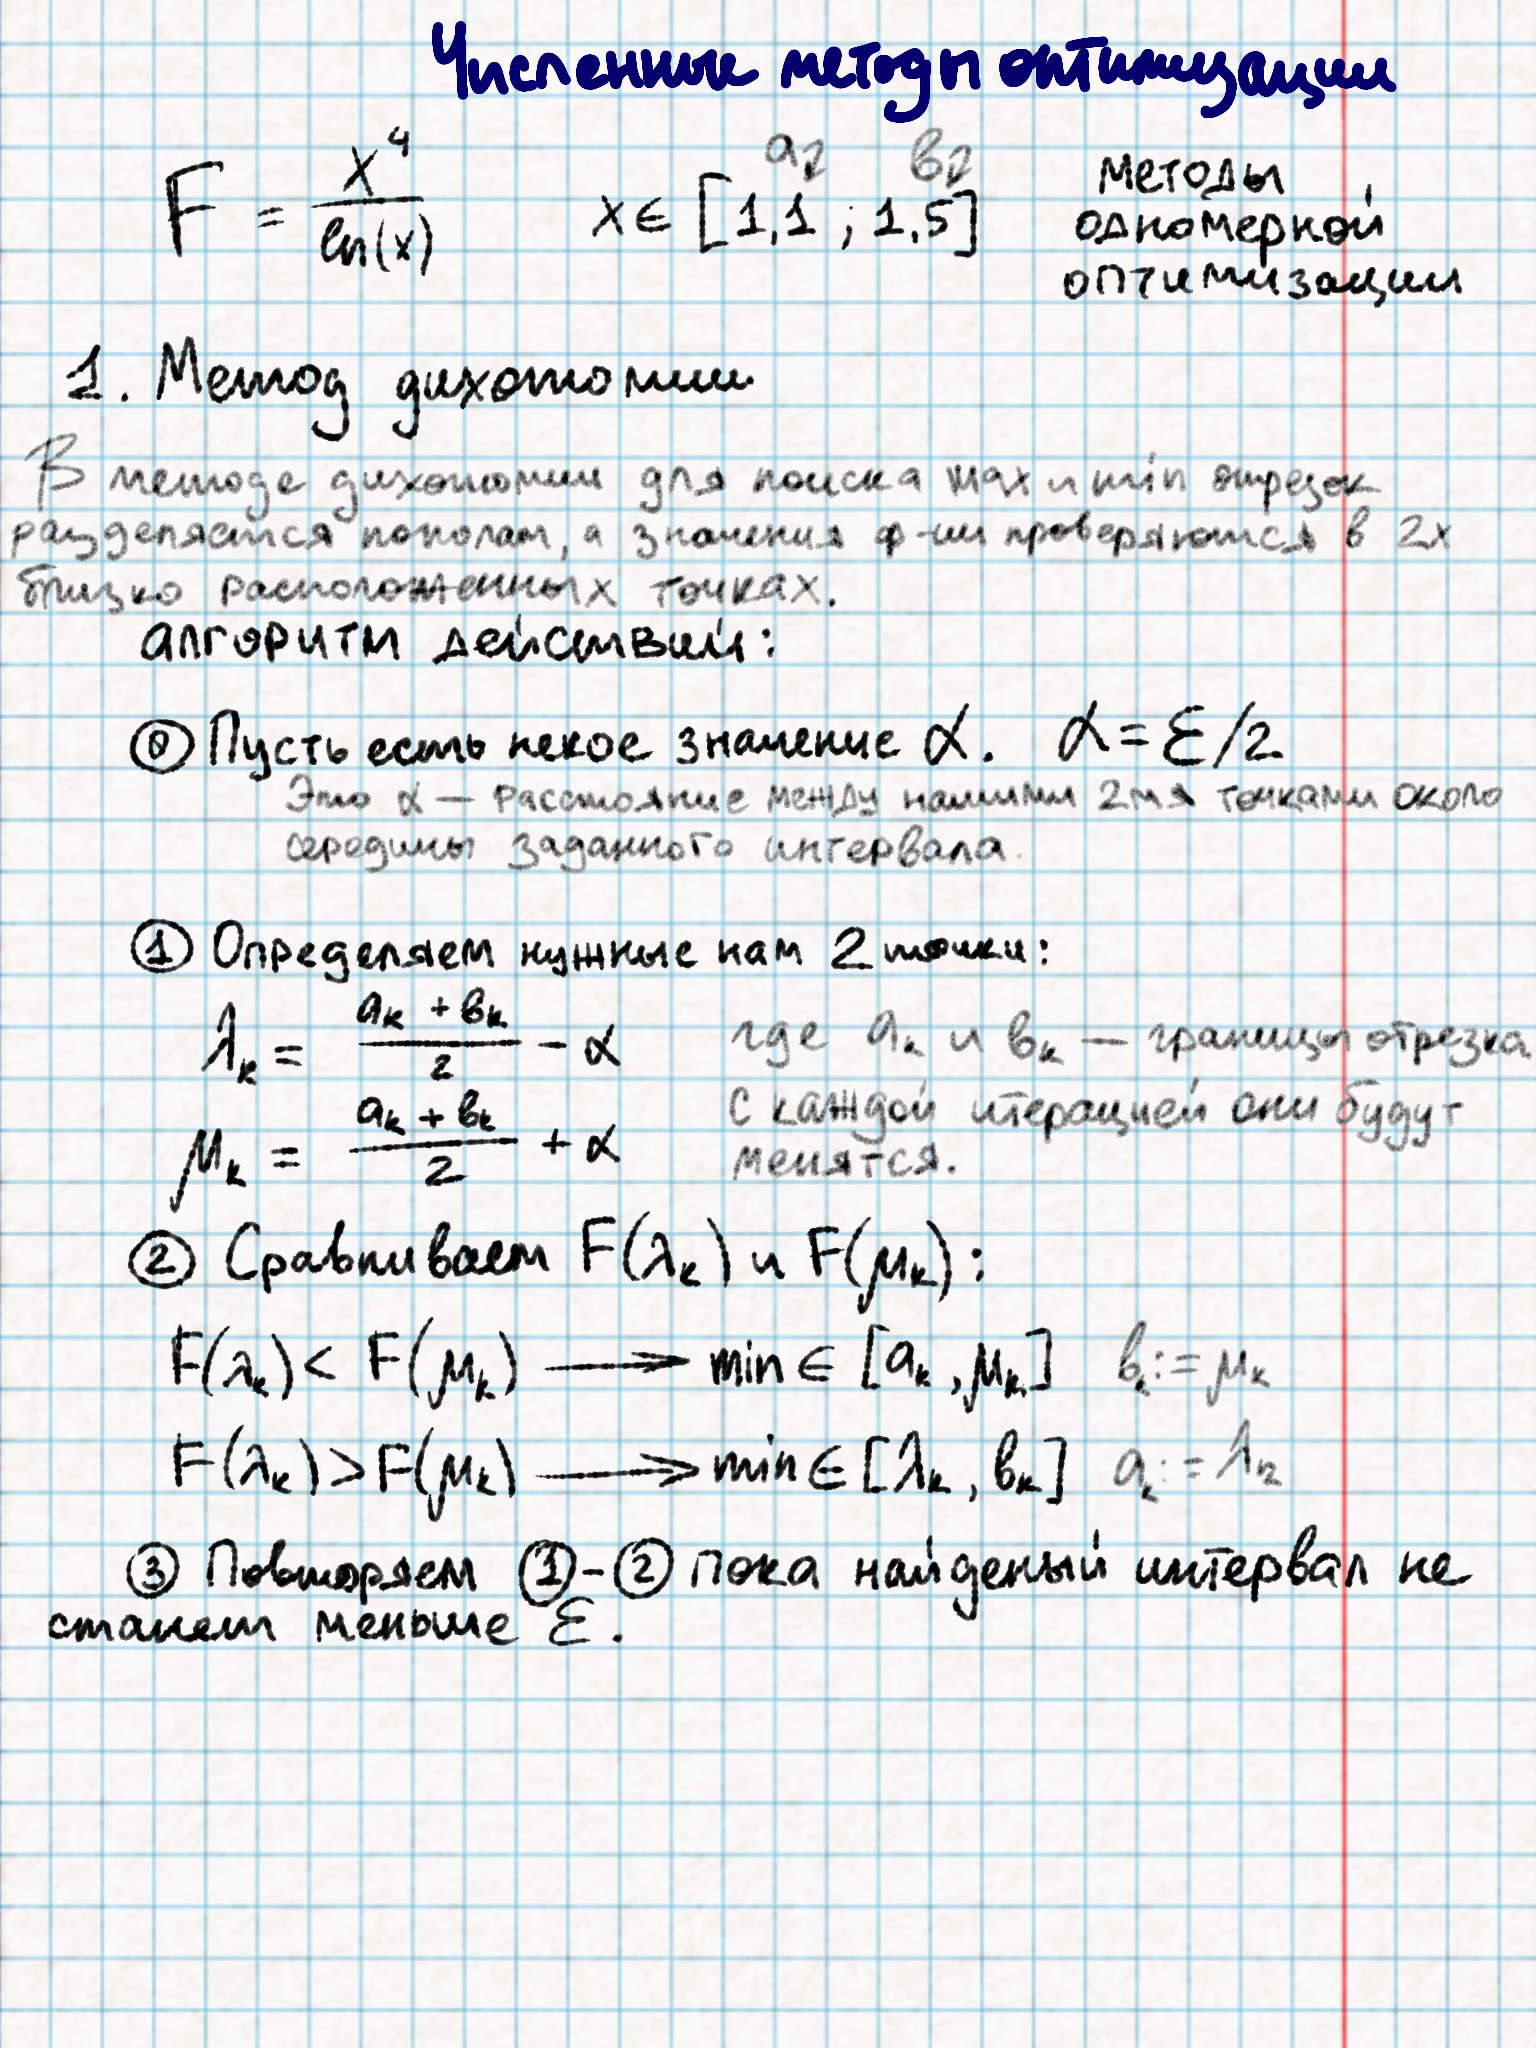 Численные методы оптимизации
a₂ в₂
F = x⁴/ln(x) x ∈ [1,1 ; 1,5] методы
одномерной
оптимизации
1. Метод дихотомии
В методе дихотомии для поиска max и min отрезок
разделяется пополам, а значения ф-ии проверяются в 2х
близко расположенных точках.
алгоритм действий:
⓪ Пусть есть некое значение α. α = ε/2
Это α — расстояние между нашими 2мя точками около
середины заданного интервала.
① Определяем нужные нам 2 точки:
λₖ = (aₖ + вₖ)/2 - α где aₖ и вₖ — границы отрезка
μₖ = (aₖ + вₖ)/2 + α С каждой итерацией они будут
менятся.
② Сравниваем F(λₖ) и F(μₖ):
F(λₖ) < F(μₖ) ⟶ min ∈ [aₖ, μₖ] вₖ := μₖ
F(λₖ) > F(μₖ) ⟶ min ∈ [λₖ, вₖ] aₖ := λₖ
③ Повторяем ①-② пока найденый интервал не
станет меньше ε.